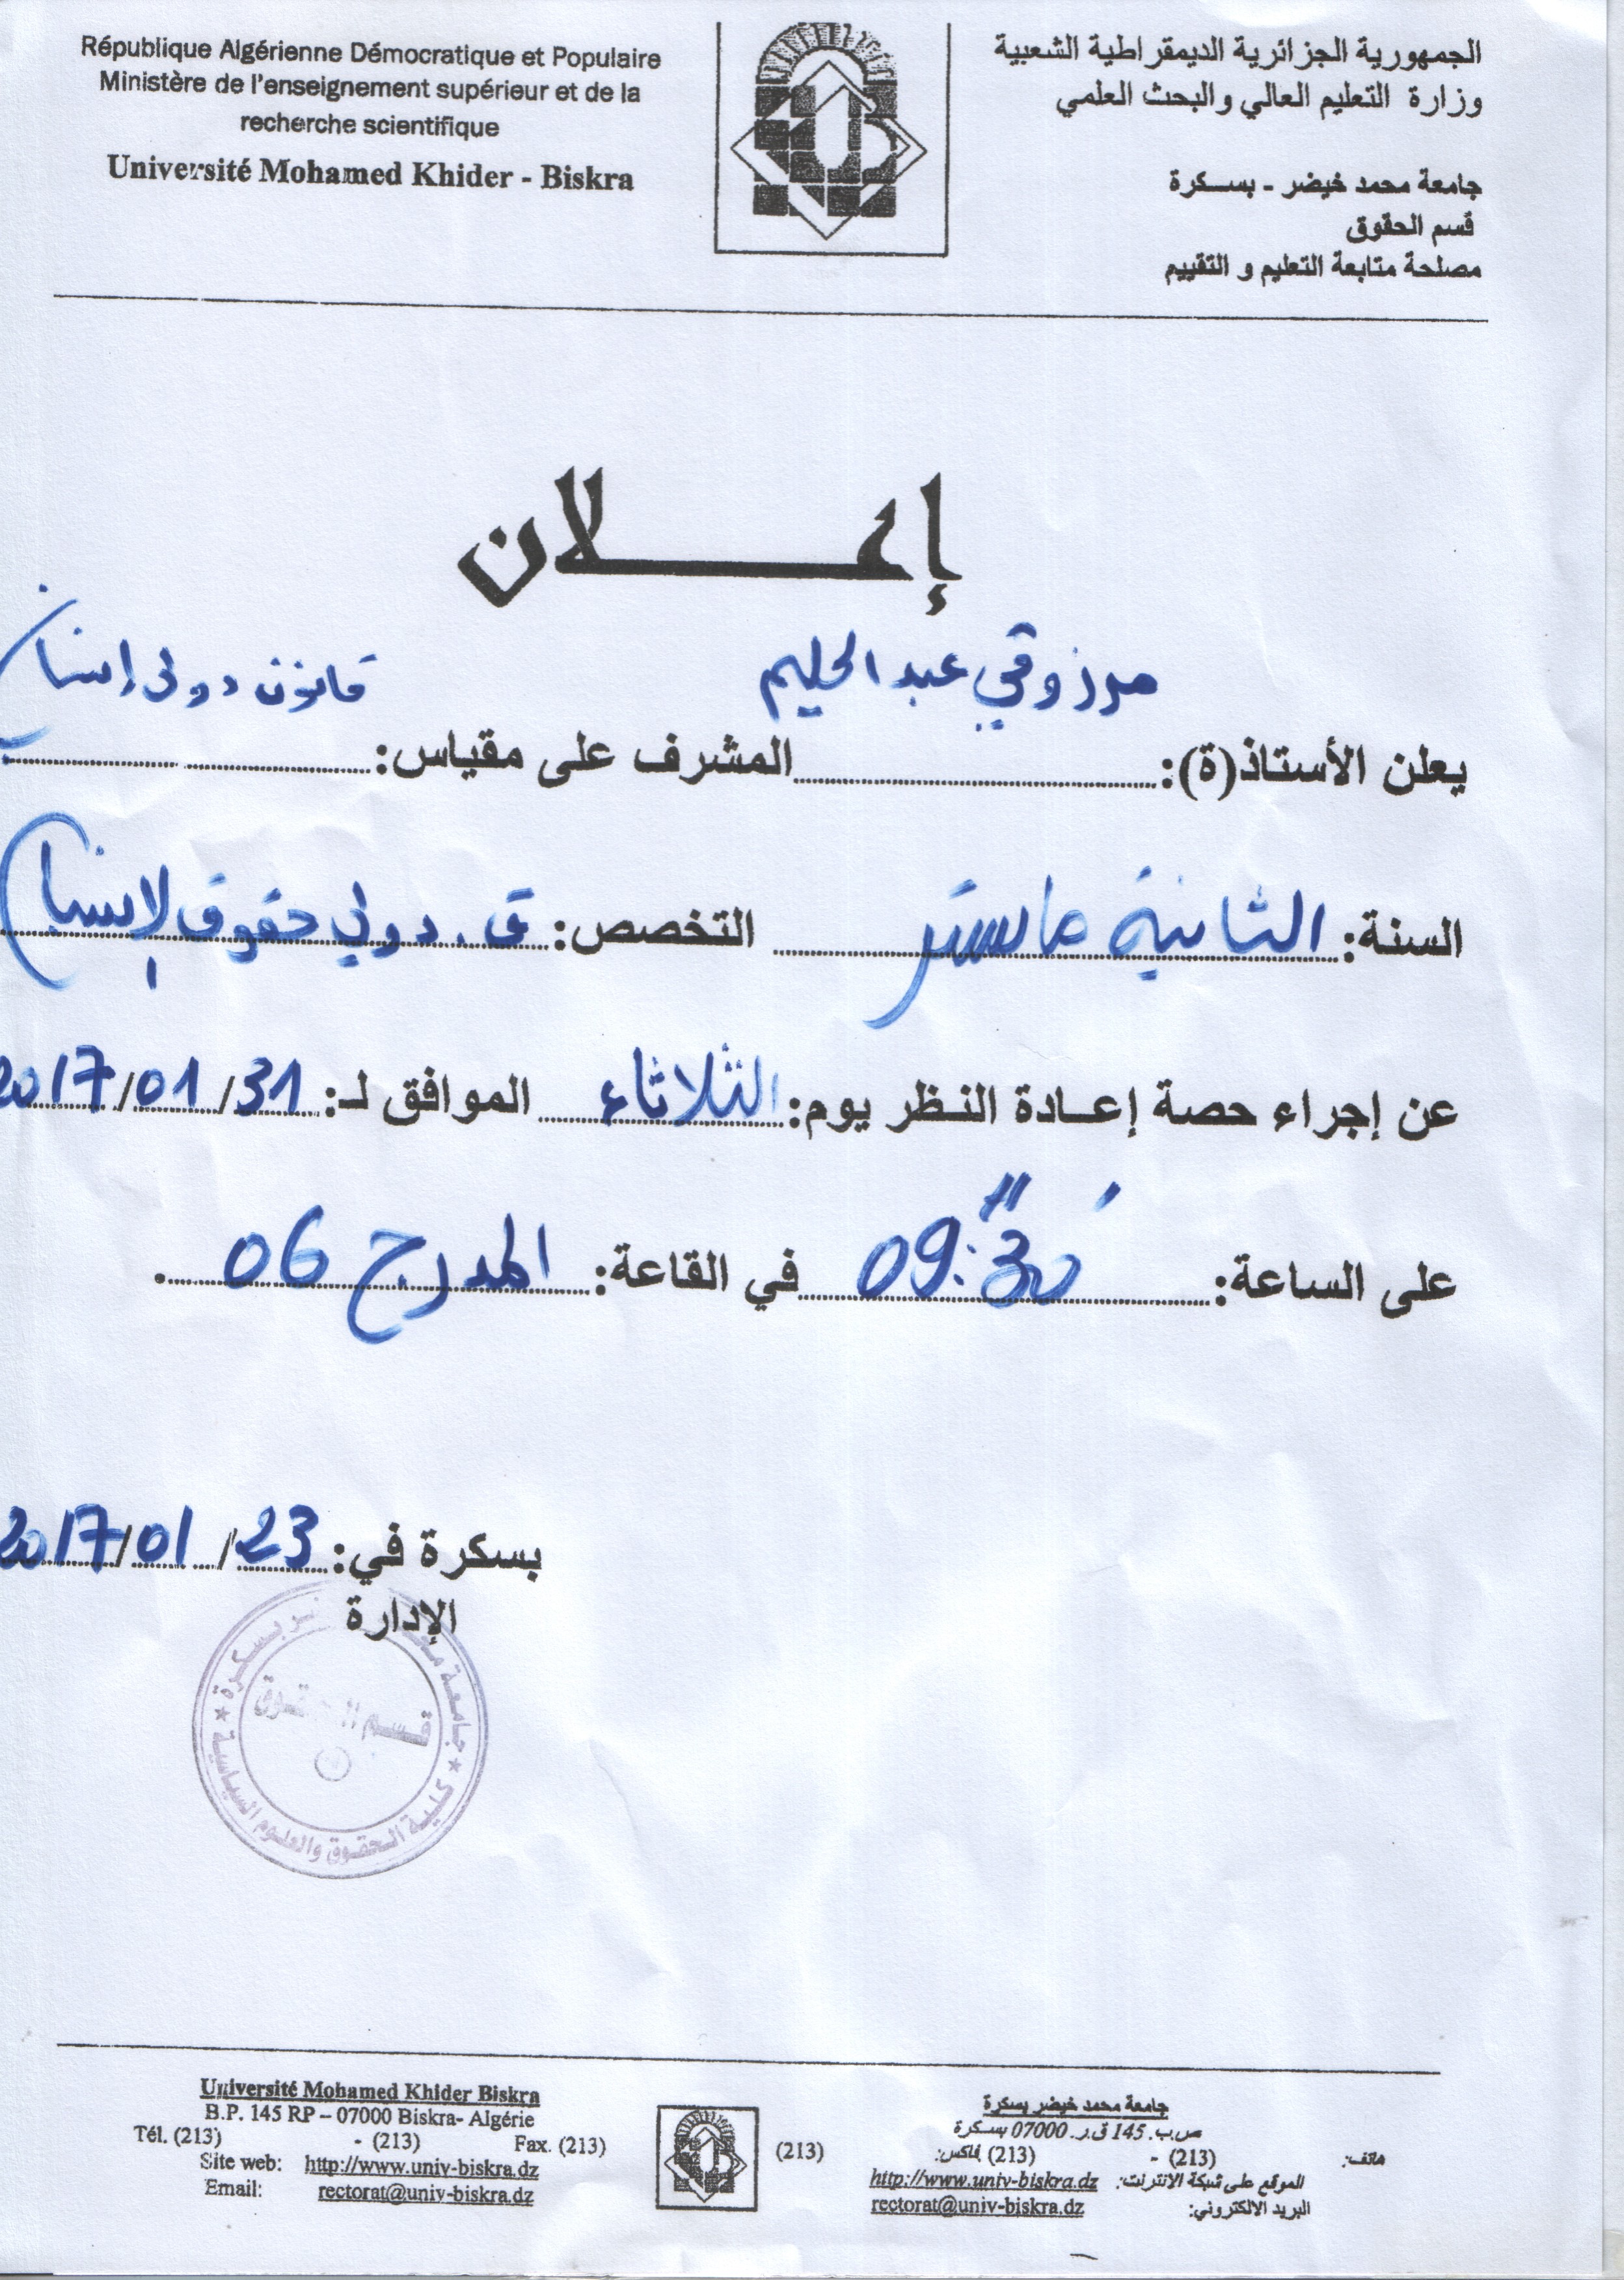 République Algérienne Démocratique et Populaire
Ministère de l'enseignement supérieur et de la
recherche scientifique
Université Mohamed Khider - Biskra
الجمهورية الجزائرية الديمقراطية الشعبية
وزارة التعليم العالي والبحث العلمي
جامعة محمد خيضر - بسكرة
قسم الحقوق
مصلحة متابعة التعليم و التقييم
إعلان
يعلن الأستاذ(ة): مرزوقي عبد الحليم المشرف على مقياس: قانون دولي إنساني
السنة: الثانية ماستر التخصص: ق. دولي حقوق الإنسان
عن إجراء حصة إعادة النظر يوم: الثلاثاء الموافق لـ: 31/01/2017
على الساعة: 09:30 في القاعة: المدرج 06.
بسكرة في: 23/01/2017
الإدارة
جامعة بسكرة
قسم الحقوق
كلية الحقوق والعلوم السياسية
Université Mohamed Khider Biskra
B.P. 145 RP – 07000 Biskra- Algérie
Tél. (213) - (213) Fax. (213)
Site web: http://www.univ-biskra.dz
Email: rectorat@univ-biskra.dz
جامعة محمد خيضر بسكرة
ص.ب. 145 ق.ر. 07000 بسكرة
هاتف: (213) - (213) فاكس: (213)
الموقع على شبكة الانترنت: http://www.univ-biskra.dz
البريد الالكتروني: rectorat@univ-biskra.dz